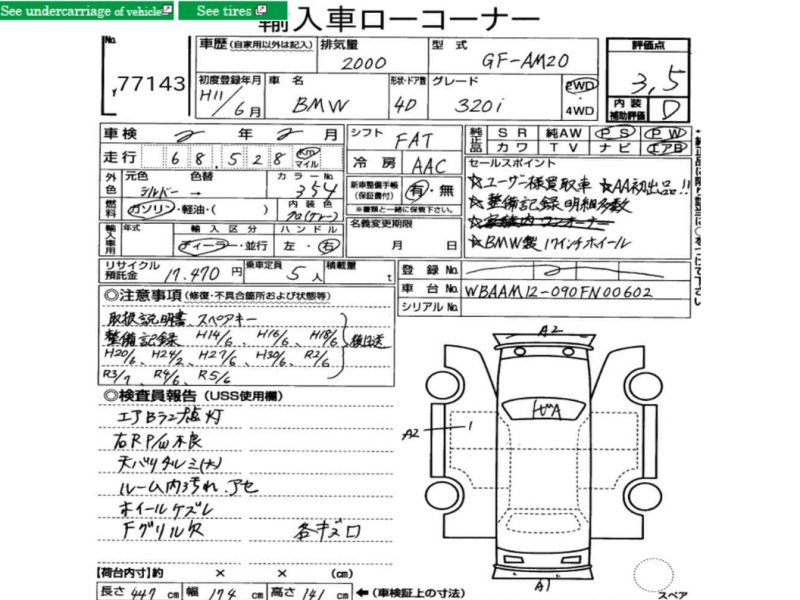 See undercarriage of vehicle
See tires
輸入車ローコーナー
No.
77143
車歴 (自家用以外は記入)
排気量
2000
型式
GF-AM20
評価点
3,5
内装補助評価
D
初度登録年月
H11/6月
車名
BMW
形状・ドア数
4D
グレード
320i
2WD
・
4WD
車検 2年2月
走行 68,528 Km マイル
シフト
FAT
冷房
AAC
純正品
SR 純AW PS PW
カワ TV ナビ エアB
外色
元色
シルバー
色替
→
カラーNo.
354
燃料
ガソリン・軽油・( )
内装色
クロ(グレー)
新車整備手帳
(保証書付)
有・無
※書類と一緒に保管下さい。
セールスポイント
☆ユーザー様買取車 ☆AA初出品!!
☆整備記録明細多数
☆家族内ワンオーナー
☆BMW製17インチホイール
輸入車用
年式
輸入区分
ディーラー・並行
ハンドル
左・右
名義変更期限
月 日
リサイクル預託金
17,470円
乗車定員
5人
積載量
t
登録No.
車台No.
WBAAM12-090FN00602
シリアルNo.
◎注意事項 (修復・不具合箇所および状態等)
取扱説明書、スペアキー
整備記録 H14/6、H16/6、H18/6
H20/6、H24/2、H27/6、H30/6、R2/6
R3/7、R4/6、R5/6
後日送
◎検査員報告 (USS使用欄)
エアBランプ点灯
右RP/W不良
天バリタルミ(大)
ルーム内汚れ、アセ
ホイールケズレ
Fグリル欠 各キズロ
A2
A2
1
A1
【荷台内寸】約 × × (cm)
長さ 447 cm 幅 174 cm 高さ 141 cm
←(車検証上の寸法)
スペア